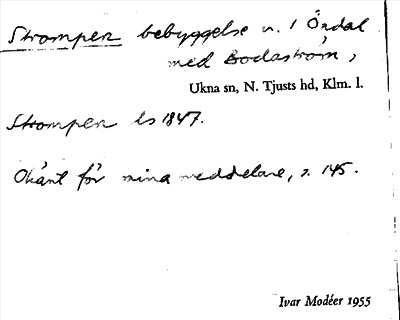 Strompen bebyggelse u. 1 Öndal
med Bodaström,
Ukna sn, N. Tjusts hd, Klm. l.
Strompen ls 1847.
Okänt för mina meddelare, s. 145.
Ivar Modéer 1955